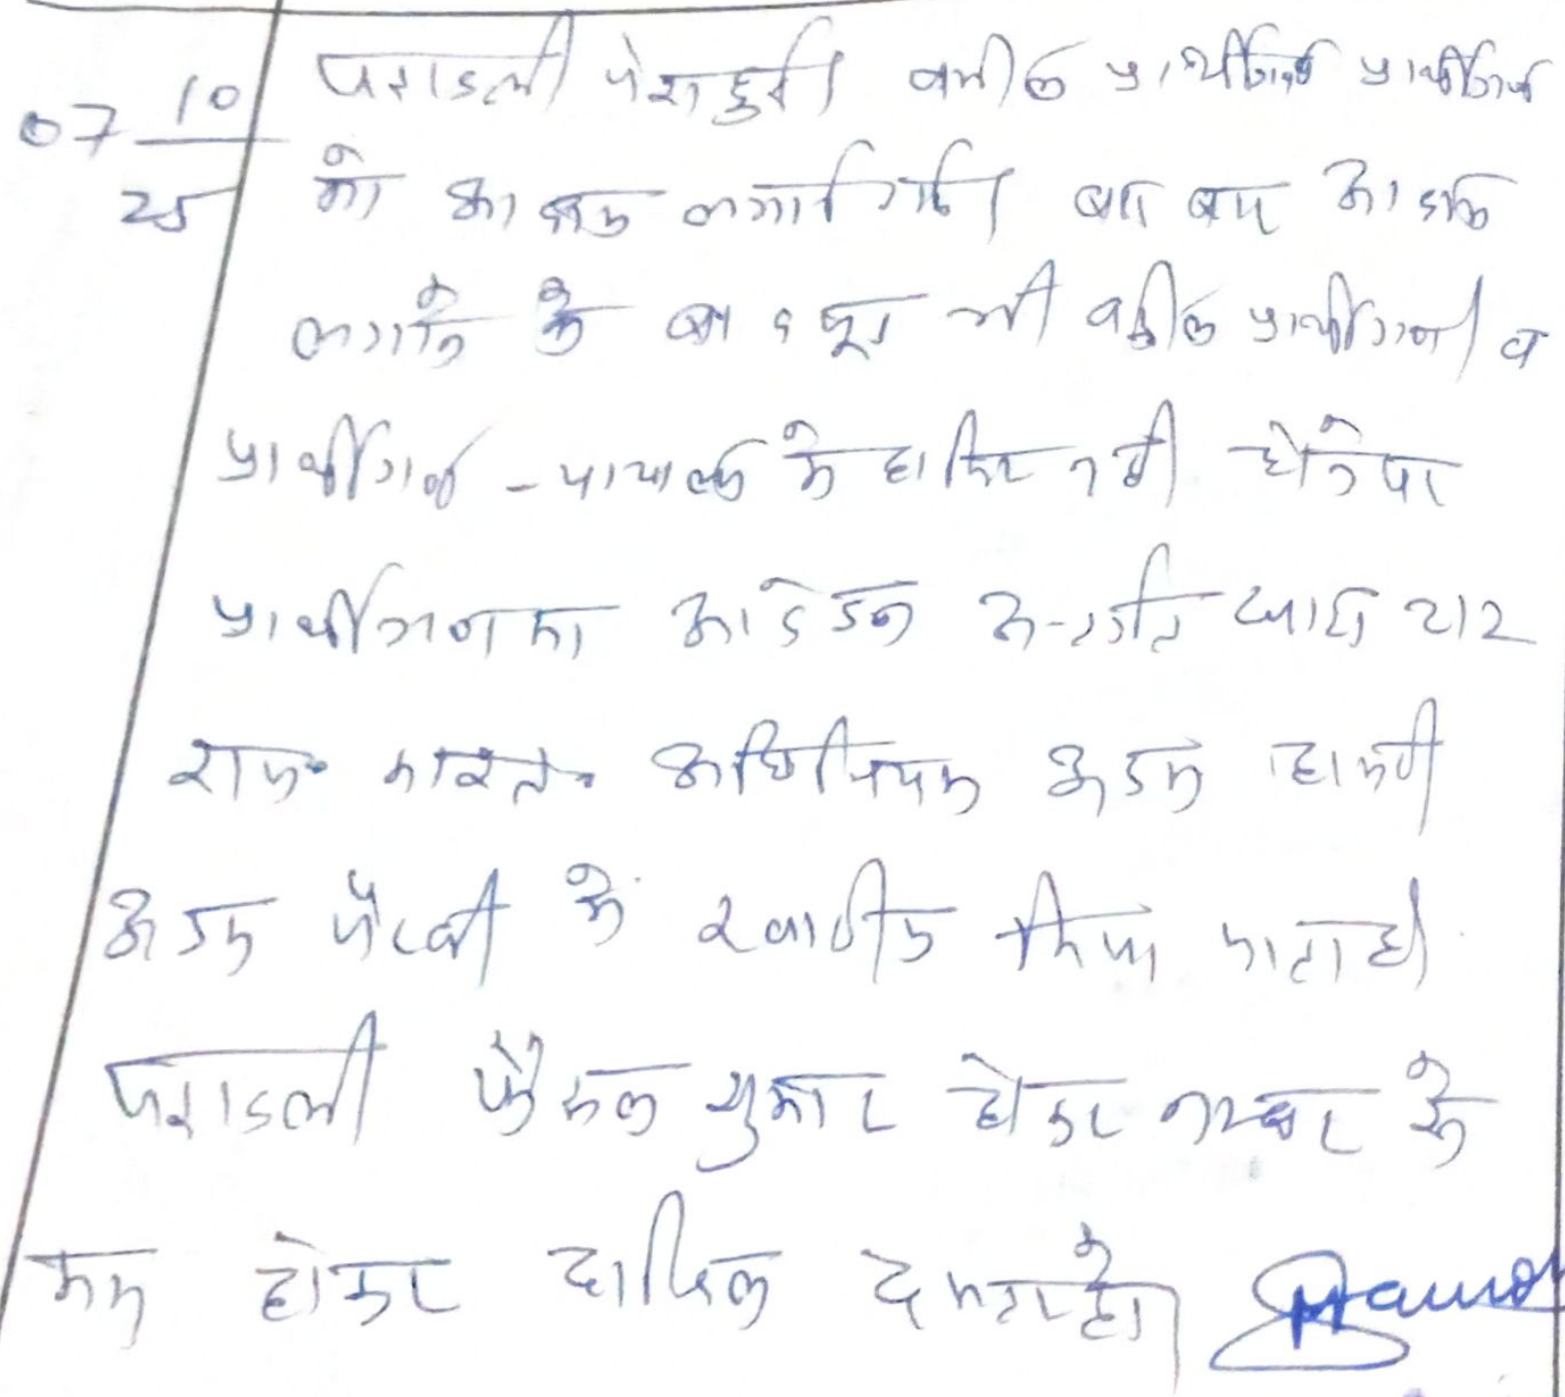 07 10/25 पत्रावली पेश हुई। वकील प्रार्थीगण प्रार्थीगण
को आवाज लगाई गई। बार बार आवाज
लगाने के बावजूद भी वकील प्रार्थीगण व
प्रार्थीगण न्यायालय में हाजिर नहीं होने पर
प्रार्थीगण का आवेदन अन्तर्गत धारा 212
राज॰ काश्त॰ अधिनियम अदम हाजरी
अदम पैरवी में खारीज किया जाता है।
पत्रावली फैसल शुमार होकर नम्बर से
कम होकर दाखिल दफ्तर हो।